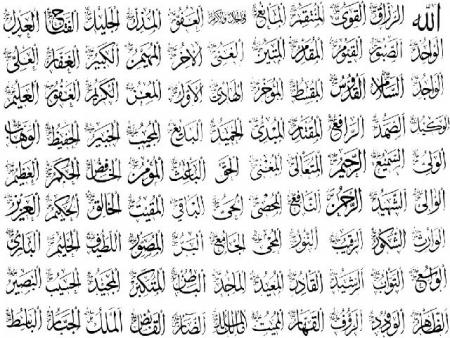 الله الرزاق القوي المنتقم المانع ذو الجلال والإكرام العفو المذل الجليل الفتاح العدل
الواحد الصبور القيوم المقدم المتين الغني الآخر المهيمن الكبير الغفار العلي
الواجد السلام القدوس المقسط المؤخر الهادي الأول المعز الكريم الغفور العليم
الوكيل الصمد الرافع المقتدر المبدئ الحميد البديع المجيب الخبير الحفيظ الوهاب
الولي السميع الرحيم المتعالي المغني الحق الباعث المؤمن الخافض الحكم العظيم
الوالي الشهيد الرحمن النافع المحصي الحي الباقي المقيت الخالق الحكيم العزيز
الوارث الشكور الرقيب النور المحي الجامع البر المصور اللطيف الحليم البارئ
الواسع التواب الرشيد القادر المعيد الماجد الباطن المتكبر المجيد الحسيب البصير
الظاهر الودود الرؤوف القهار المميت مالك الملك الضار القابض الملك الجبار الباسط